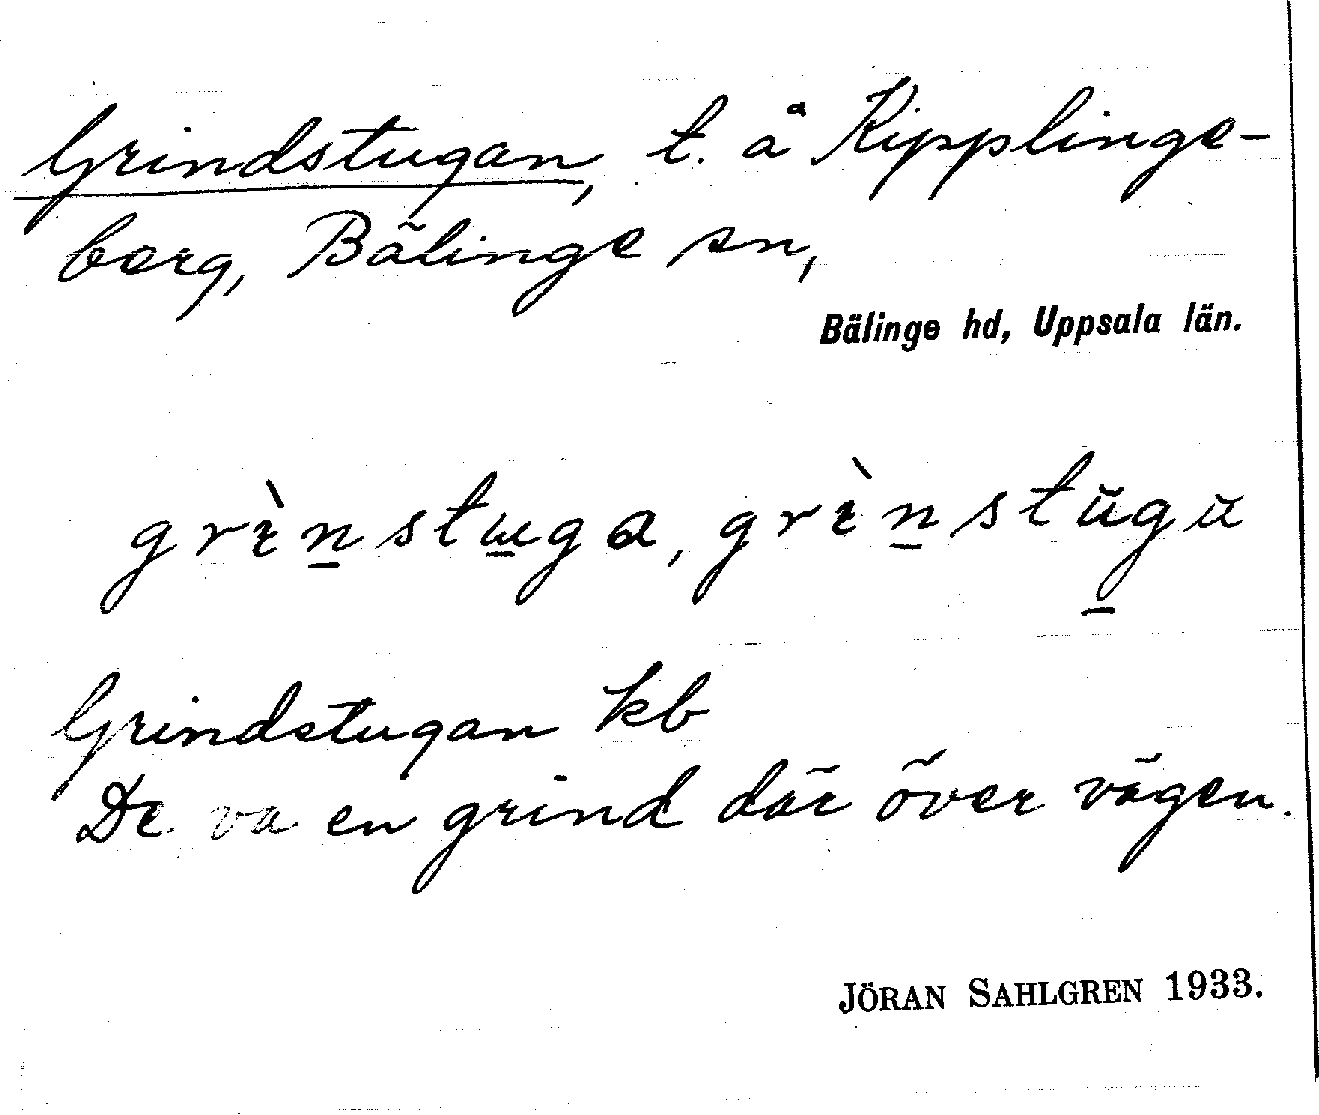 Grindstugan, t. å Kipplinge-
berg, Bälinge sn,
Bälinge hd, Uppsala län.
grɪ̀n̲stɯ̲ga, grɪ̀n̲stŭg̲ŭ
Grindstugan kb
De va en grind där över vägen.
JÖRAN SAHLGREN 1933.